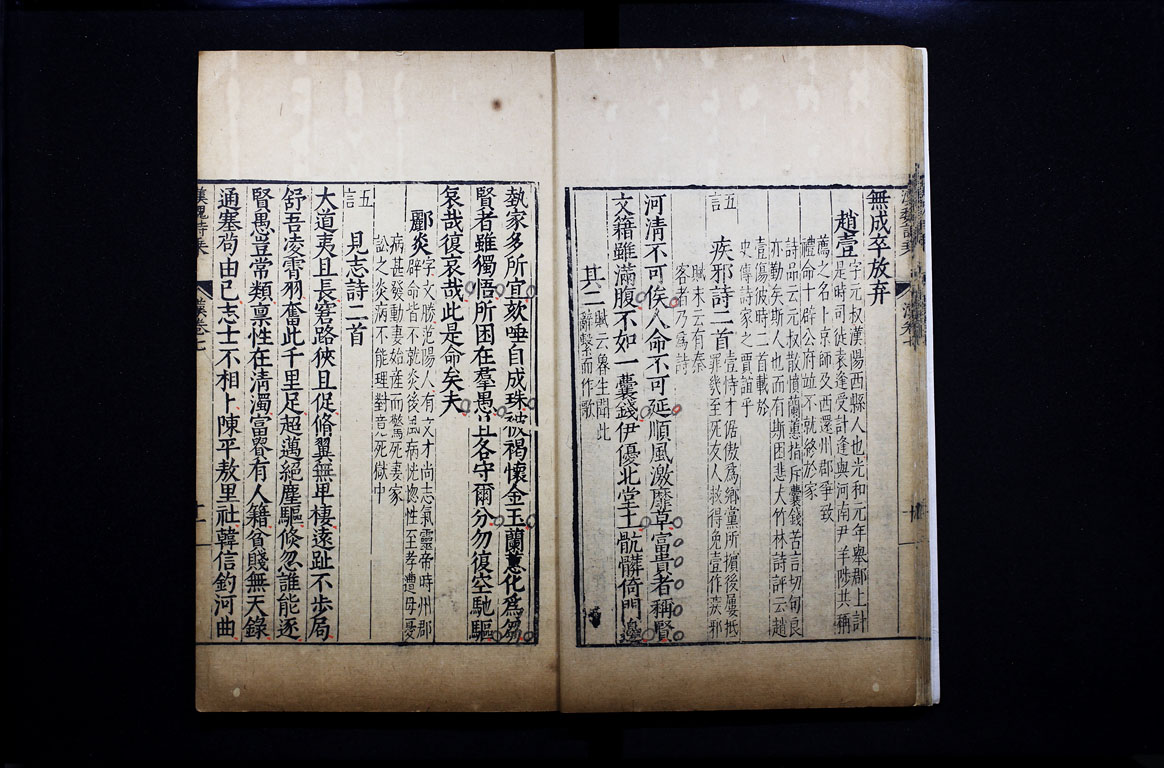 無成卒放弃
趙壹
字元叔漢陽西縣人也光和元年舉郡上計
是時司徒袁逢受計逢與河南尹羊陟共稱
薦之名卜京師及西還州郡爭致
禮命十辟公府竝不就終於家
詩品云元叔散憤蘭蕙指斥囊錢苦言切句良
亦勤矣斯人也而有斯困悲夫竹林詩評云趙
壹傷彼時二首載於
史傳詩家之賈誼乎
五言
疾邪詩二首
壹恃才倨傲爲鄉黨所擯後屢抵
罪幾至死友人救得免壹作疾邪
賦末云有秦
客者乃爲詩
河清不可俟人命不可延順風激靡草富貴者稱賢
文籍雖滿腹不如一囊錢伊優北堂上骯髒倚門邊
其二
賦云魯生聞此
辭繫而作歌
埶家多所宜欬唾自成珠被褐懷金玉蘭蕙化爲芻
賢者雖獨悟所困在羣愚且各守爾分勿復空馳驅
哀哉復哀哉此是命矣夫
酈炎
字文勝范陽人有文才尚志氣靈帝時州郡
辟命皆不就炎後風病恍惚性至孝遭母憂
病甚發動妻始産而驚死妻家
訟之炎病不能理對竟死獄中
五言
見志詩二首
大道夷且長窘路狹且促脩翼無卑棲遠趾不步局
舒吾凌霄羽奮此千里足超邁絕塵驅倏忽誰能逐
賢愚豈常類稟性在清濁富貴有人籍貧賤無天錄
通塞苟由已志士不相卜陳平敖里社韓信釣河曲
漢魏詩乘
漢卷七
十一